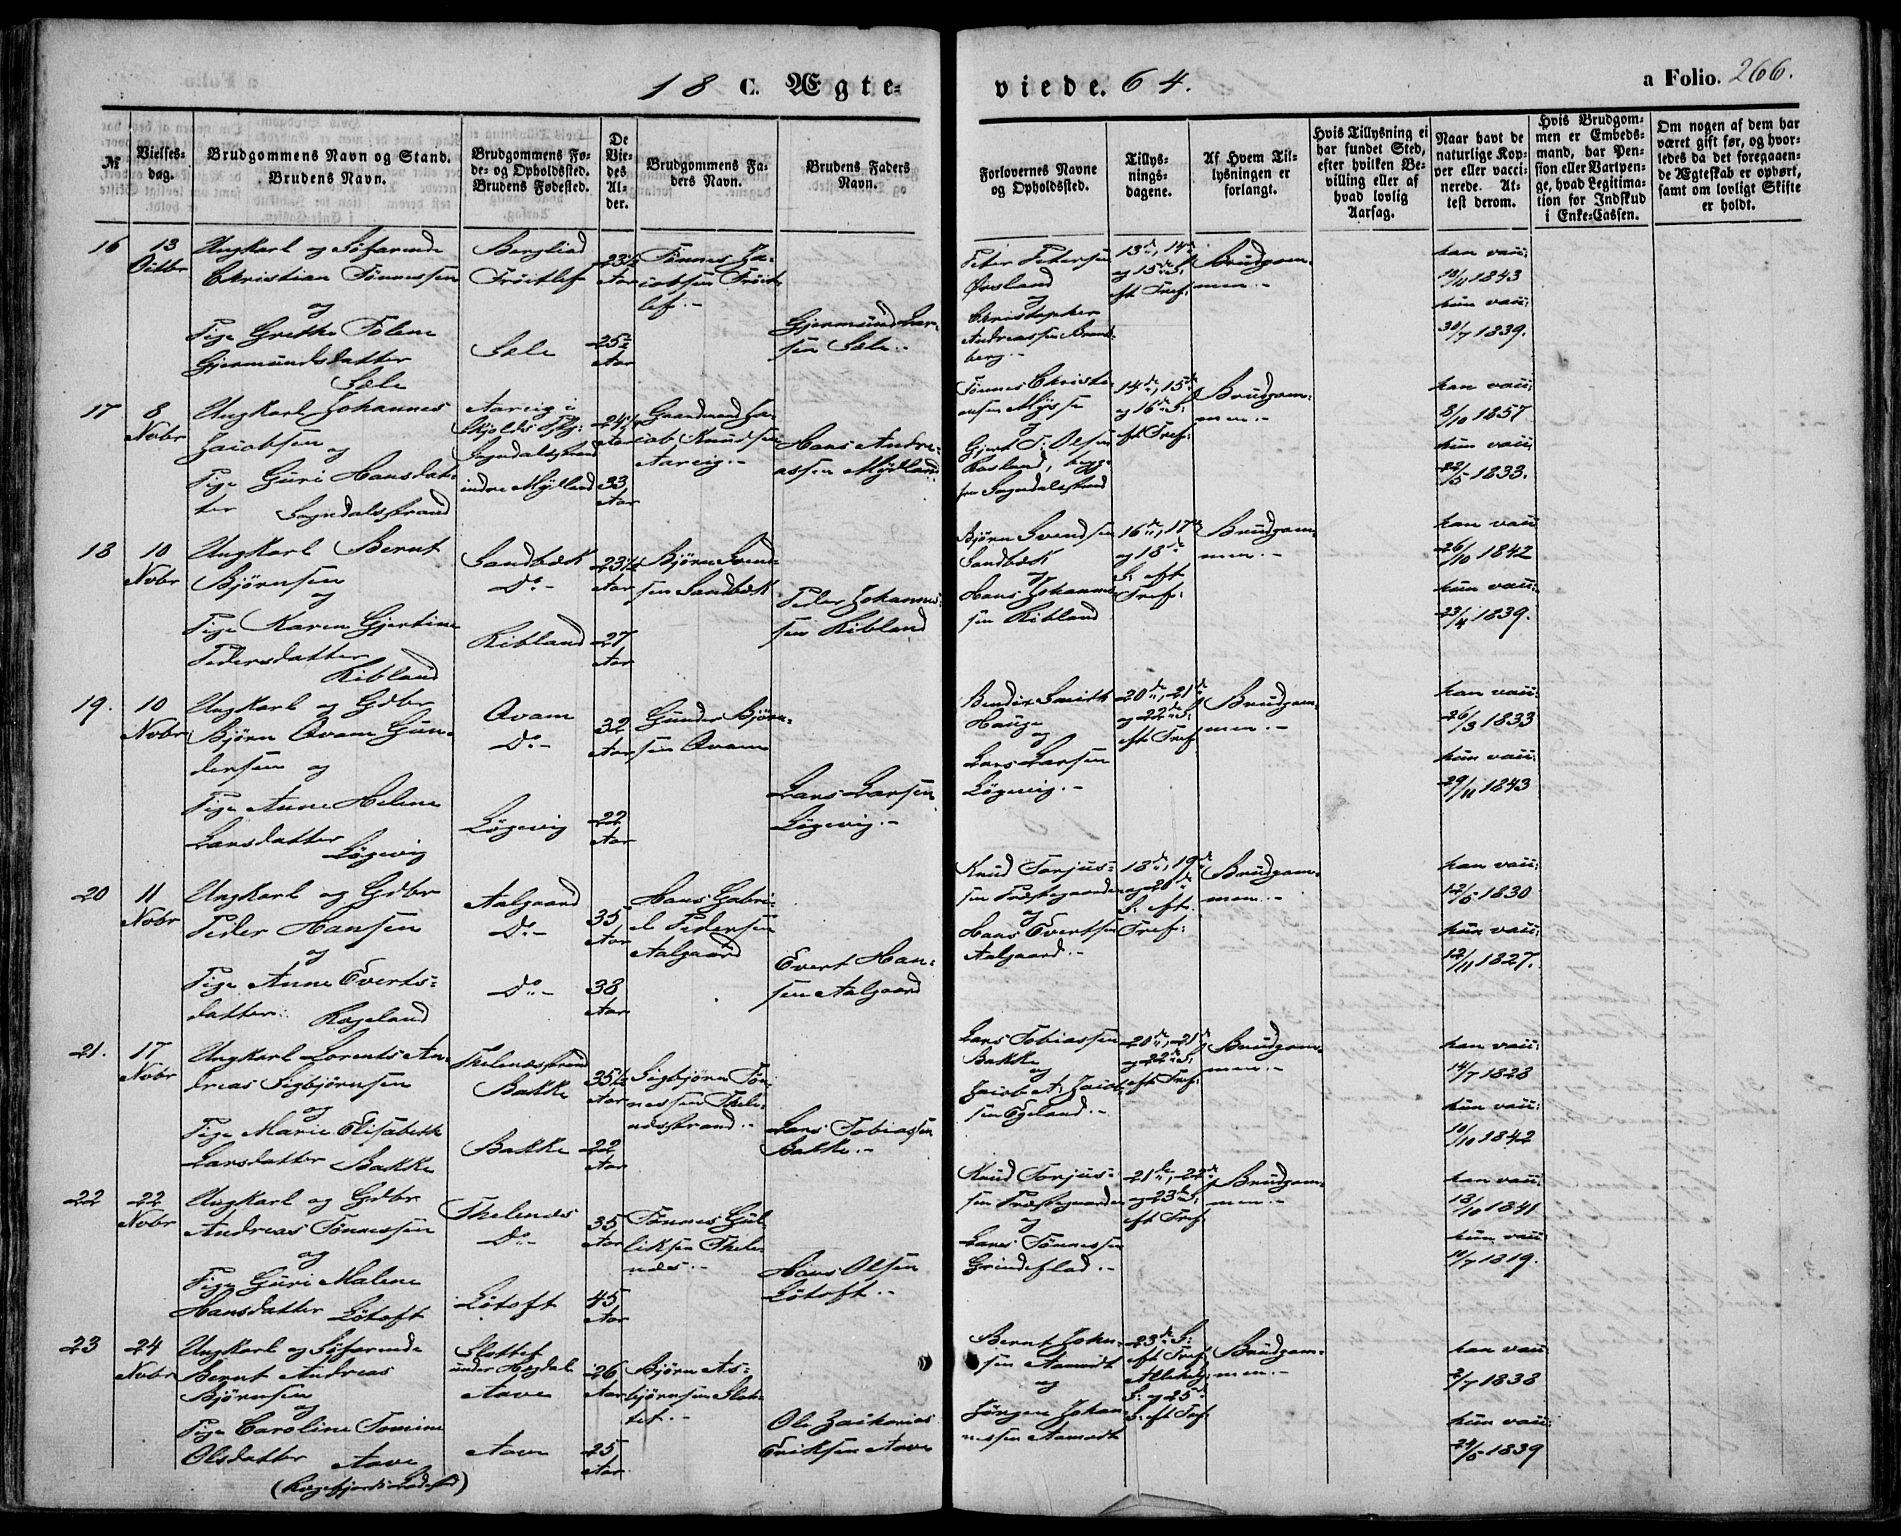 18 C. Ægte-
viede. 64.
a Folio. 266.
№
Vielses-
dag.
Brudgommens Navn og Stand.
Brudens Navn.
Brudgommens Fø-
de- og Opholdssted.
Brudens Fødested.
De
Vie-
des
Al-
der.
Brudgommens Fa-
ders Navn.
Brudens Faders
Navn.
Forlovernes Navne
og Opholdssted.
Tillys-
nings-
dagene.
Af Hvem Til-
lysningen er
forlangt.
Hvis Tillysning ei
har fundet Sted,
efter hvilken Be-
villing eller af
hvad lovlig
Aarsag.
Naar havt de
naturlige Kop-
per eller vacci-
nerede. At-
test derom.
Hvis Brudgom-
men er Embeds-
mand, har Pen-
sion eller Vartpen-
ge, hvad Legitima-
tion for Indskud
i Enke-Cassen.
Om nogen af dem har
været gift før, og hvor-
ledes da det foregaaen-
de Ægteskab er ophørt,
samt om lovligt Skifte
er holdt.
16
13
Octbr
Ungkarl og Søfarende
Christian Tønnessen
og
Pige Grethe Tolene
Gjermundsdatter
Sæle
Berglied
Frøitlef
Sæle
23½
Aar
25
Aar
Tønnes Ja-
cobsen Frøit-
lef.-
Gjermund Lar-
sen Sæle.-
Peter Petersen
Ørsland
og
Christopher
Andreassen
berg.-
13de, 14de
og 15de S:
eft Tref:
Brudgom-
men.-
han vacc:
10/11 1843
hun vacc:
30/7 1839.
17
8
Novbr
Ungkarl Johannes
Jacobsen
og
Pige Guri Hansdat-
ter Sogndalsstrand
Aarvig i
Skjolds
Sogndalsstrand
indre Mydland
24¼
Aar
33
Aar
Gaardmand Ja-
cob Knudsen
Aarvig.-
Hans Andre-
assen Mydland.
Tønnes Christi-
ansen Mysse
og
Gjert T. Olsen
Rosland, begge
fra Sogndalsstrand
14de, 15de
og 16de S:
eft Tref:
Brudgom-
men.-
han vacc:
8/10 1857
hun vacc:
22/5 1833.
18
10
Novbr
Ungkarl Bernt
Bjørnsen
og
Pige Karen Gjertine
Pedersdatter
Kibland
Sandbæk
Do-
Kibland
23¼
Aar
27
Aar
Bjørn Svend-
sen Sandbæk
Peder Johannes-
sen Kibland
Bjørn Svendsen
Sandbæk
og
Hans Johannes-
sen Kibland
16de, 17de
og 18de
S: eft
Tref:
Brudgom-
men.-
han vacc
26/10 1842
hun vacc:
23/4 1839.
19.
10
Novbr
Ungkarl og Gdbr
Bjørn Qvam Gun-
dersen og
Pige Anne Helene
Larsdatter
Løgevig
Qvam
Do-
Løgevig
32
Aar
22
Aar
Gunder Bjørn-
sen Qvam
Lars Larsen
Løgevig.-
Bendix Smith
Hauge
og
Lars Larsen
Løgevig.-
20de, 21de
og 22de S:
eft Tref
Brudgom-
men.-
han vacc:
26/3 1833
hun vacc:
29/11 1843
20
11
Novbr
Ungkarl og Gdbr
Peder Hansen
og
Pige Anne Everts-
datter. Rægeland
Aalgaard
Do-
Do-
35
Aar
38
Aar
Hans Gabri-
el Pedersen
Aalgaard
Evert Han-
sen Aalgaard
Knud Torjus-
sen Præstegaarden
og
Hans Evertsen
Aalgaard.-
18de, 19de
og 20de
S: eft.
Tref:
Brudgom-
men.-
han vacc:
12/6 1830
hun vacc:
12/11 1827.
21.
17
Novbr
Ungkarl Lorents An-
dreas Sigbjørnsen
og
Pige Marie Elisabeth
Larsdatter Bakke
Skelenæsstrand
Bakke
Bakke
35½
Aar
22
Aar
Sigbjørn Tøn-
nessen Skele-
næsstrand.-
Lars Tobiassen
Bakke.-
Lars Tobiassen
Bakke
og
Jacob A. Jacob-
sen Egeland.-
20de, 21de
og 22de S:
eft Tref:
Brudgom-
men.-
han vacc:
14/7 1828
hun vacc:
10/10 1842
22
22
Novbr
Ungkarl og Gdbr
Andreas Tønnessen
og
Pige Guri Malene
Hansdatter Løtoft
Skelenæs
Do-
Løtoft
35
Aar
45
Aar
Tønnes Gul-
liksen Skele-
næs.-
Hans Olsen
Løtoft.-
Knud Torjus-
sen Præstegaarden
og
Lars Tønnessen
Grindeflad.-
21de, 22de
og 23de S:
eft Tref:
Brudgom-
men.-
han vacc:
13/10 1841
hun vacc:
10/7 1819.
23
24
Novbr
Ungkarl og Søfarende
Bernt Andreas
Bjørnsen
og
Pige Caroline Tomine
Olsdatter Aave
(Rægefjords Ladested)
Slottet
under Hegdal
Aave
Aave
26
Aar
25
Aar
Bjørn As-
bjørnsen Slot-
tet.-
Ole Zacharias
Eriksen Aave
Bernt Johan-
sen Aamodt
og
Jørgen Johan-
nessen Aamodt
23de S:
eft Tref
Allehelg:
S: og 25de
S: eft Tref:
Brudgom-
men.-
han vacc:
2/7 1838
hun vacc:
24/6 1839